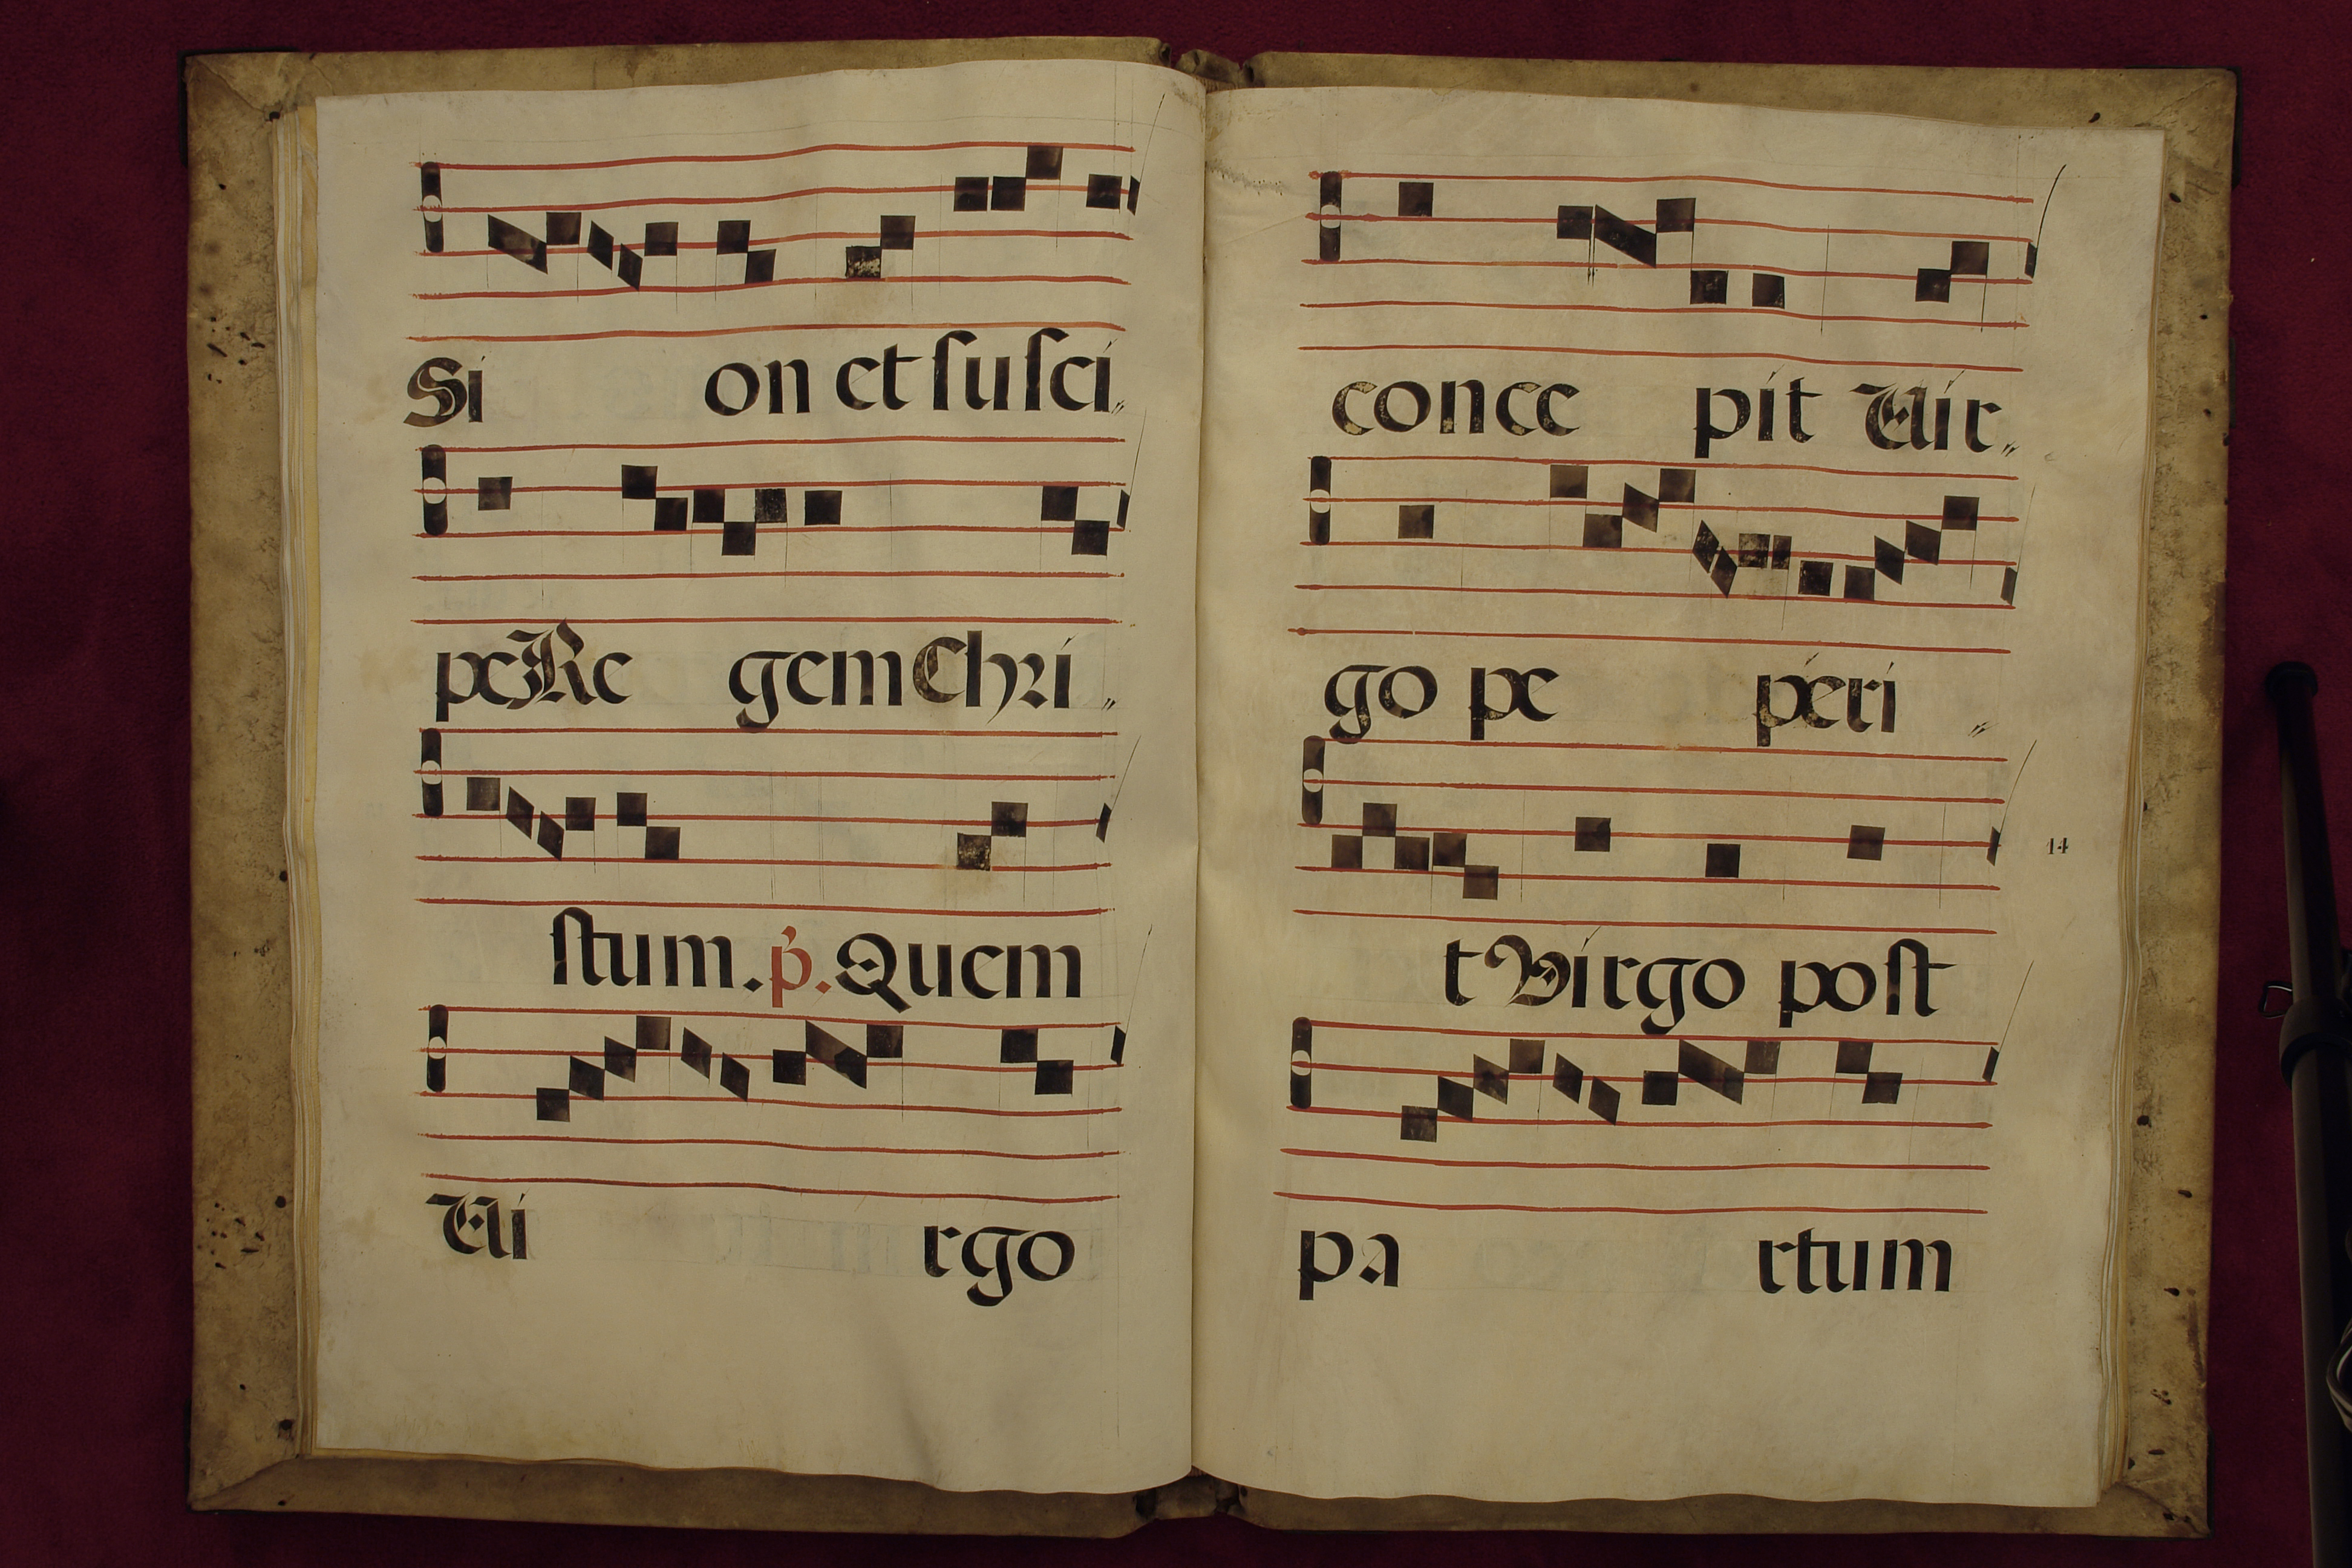 Si on et ſuſci„
pe Re gem Chri„
ſtum. p̓. Quem
Vi rgo
conce pit Vir„
go pe peri„
t Virgo poſt
14
pa rtum